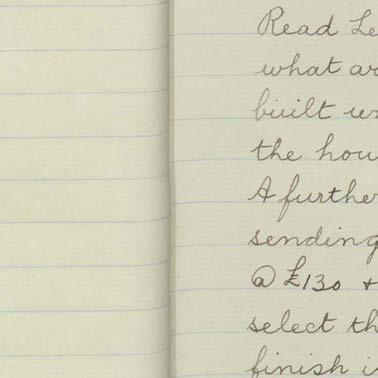 Read Le
what ar
built un
the hou
A further
sending
@ £130 +
select th
finish i